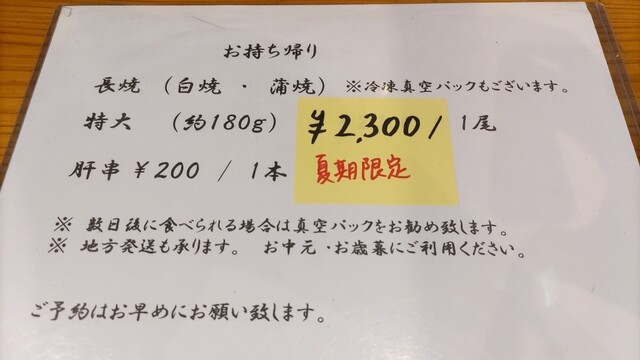 お持ち帰り
長焼 (白焼 ・ 蒲焼) ※冷凍真空パックもございます。
特大 (約180g) ¥2,300/ 1尾
肝串 ¥200 / 1本 夏期限定
※ 数日後に食べられる場合は真空パックをお勧め致します。
※ 地方発送も承ります。 お中元・お歳暮にご利用ください。
ご予約はお早めにお願い致します。